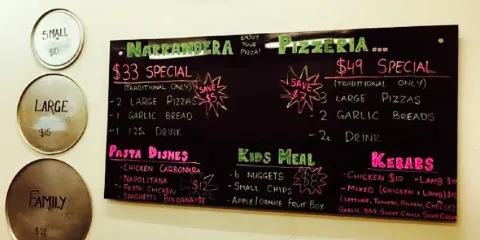 SMALL
$10
LARGE
$15
FAMILY
NARRANDERA ENJOY YOUR PIZZA! PIZZERIA...
$33 SPECIAL
(TRADITIONAL ONLY)
- 2 LARGE PIZZAS
- 1 GARLIC BREAD
- 1 1.25L DRINK
SAVE $5
$49 SPECIAL
(TRADITIONAL ONLY)
3 LARGE PIZZAS
- 2 GARLIC BREADS
- 2L DRINK
SAVE $7
PASTA DISHES
- CHICKEN CARBONARA
- NAPOLITANA
- PESTO CHICKEN
- SPAGHETTI BOLOGNAISE
$12
KIDS MEAL
- 6 NUGGETS
- SMALL CHIPS
- APPLE/ORANGE FRUIT BOX
KEBABS
- CHICKEN $10 - LAMB $10
- MIXED (CHICKEN & LAMB)
(LETTUCE, TOMATO, ONION, CHEESE)
GARLIC, BBQ, SWEET CHILLI, SOUR CREAM